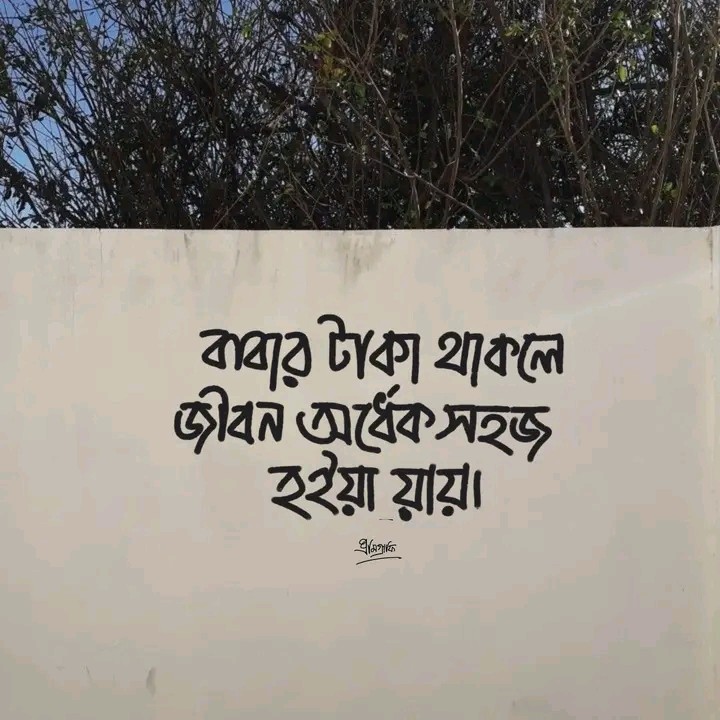 বাবার টাকা থাকলে
জীবন অর্ধেক সহজ
হইয়া য়ায়।